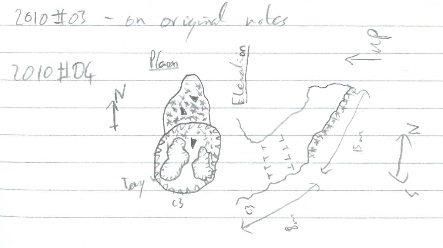 2010#03 - on original notes
2010#04
Plan
Elevation
up
N
N
15m
S
C3
C3
8m